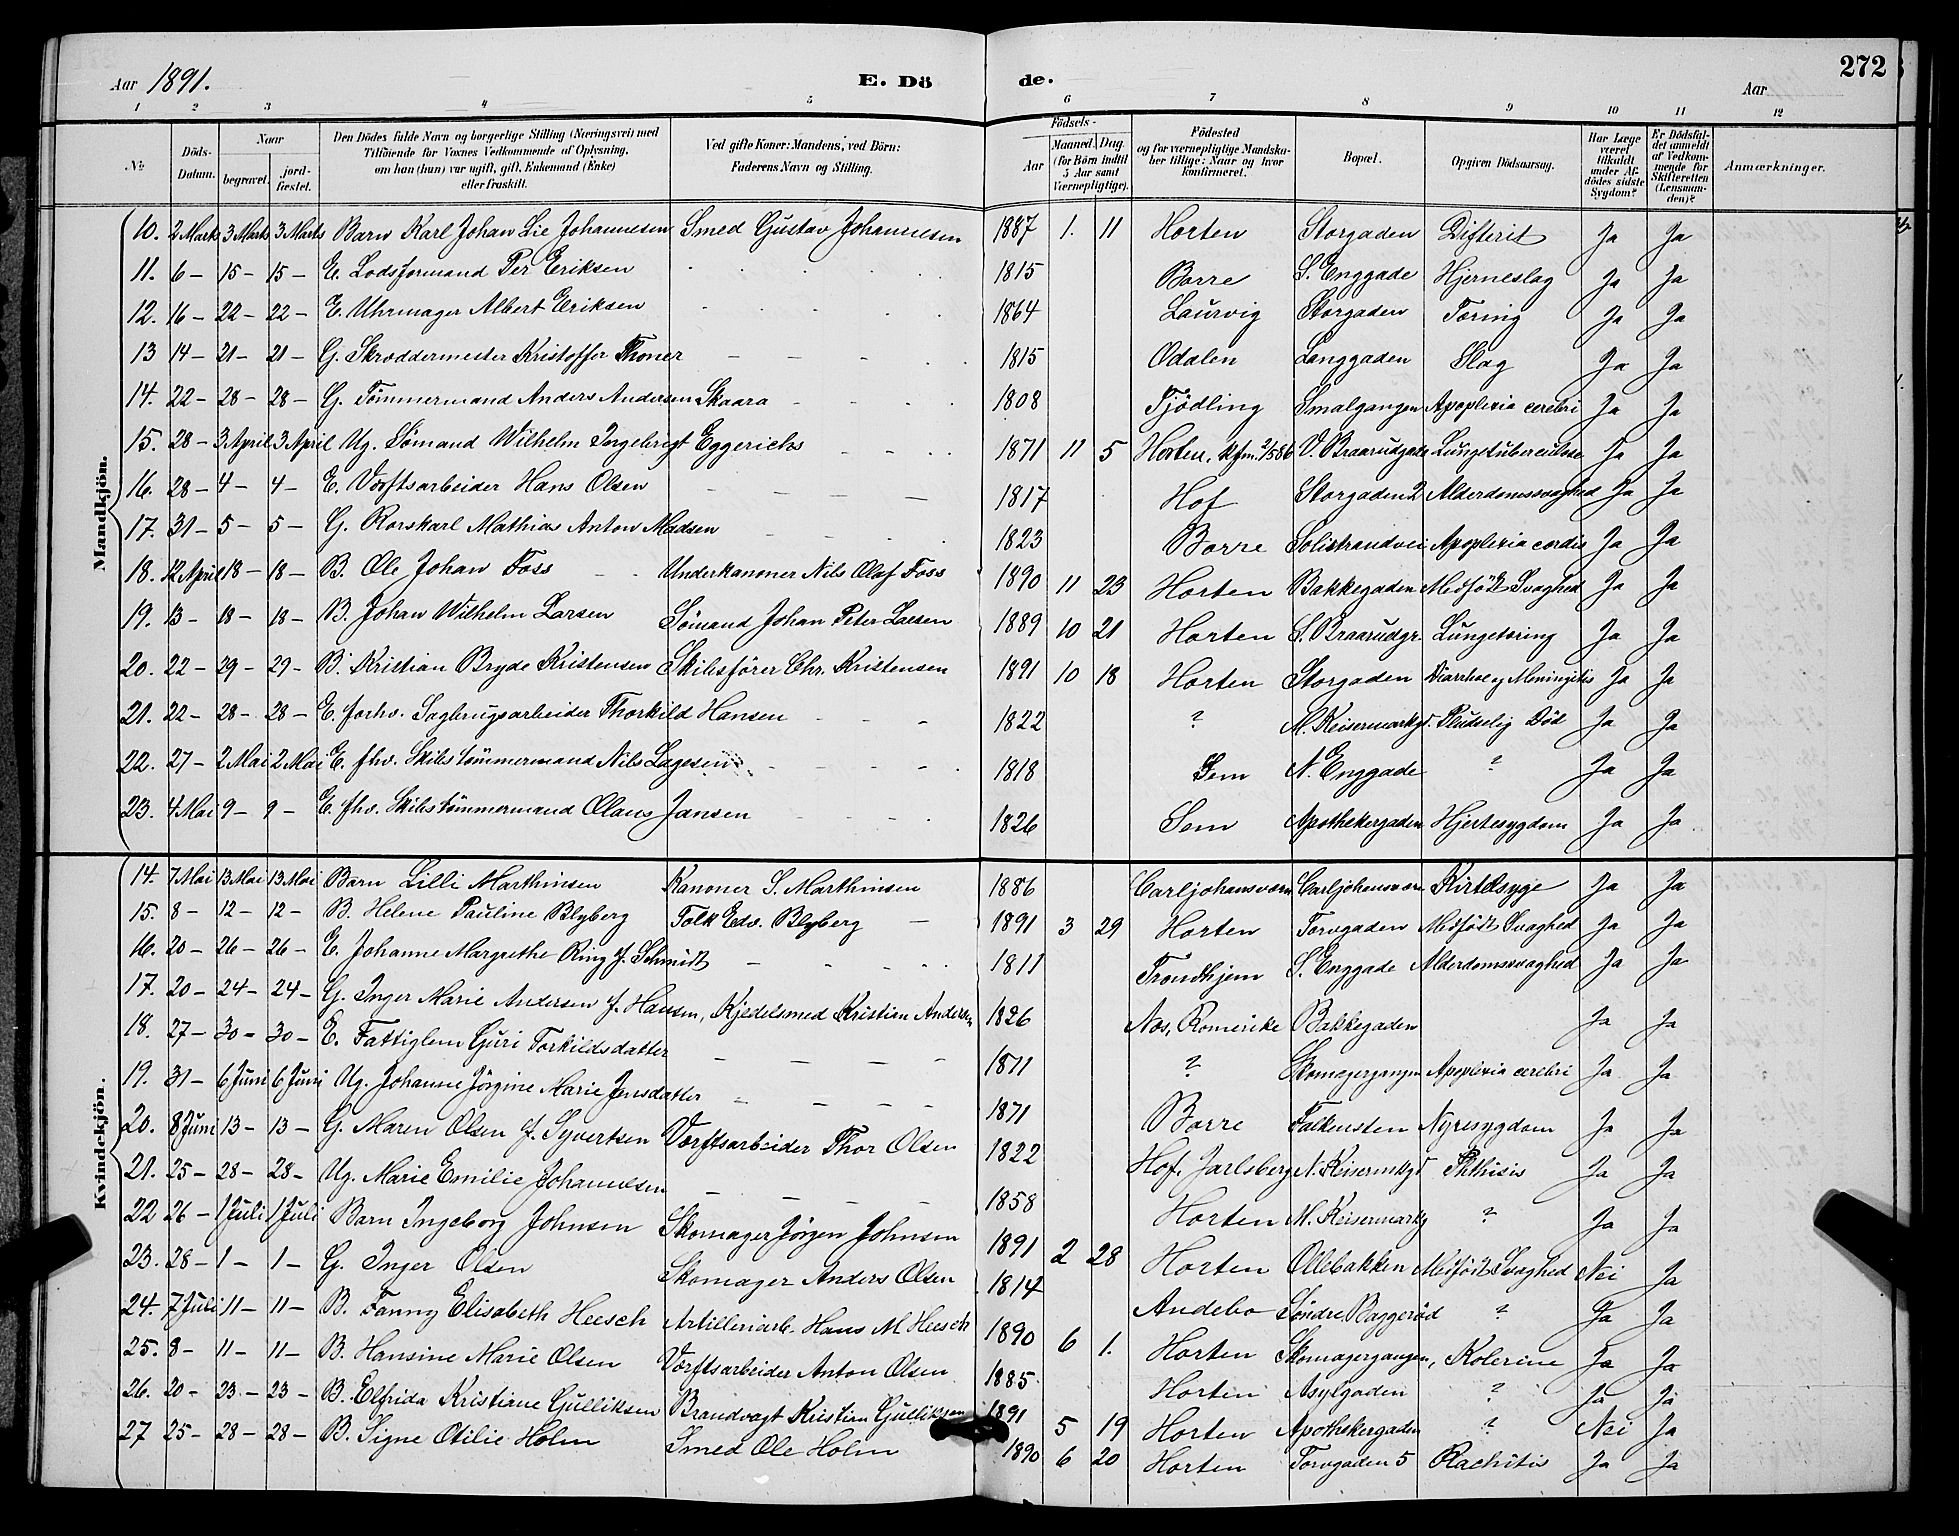 272
Aar 1891. E. Dö de. Aar
1 2 3 4 5 6 7 8 9 10 11 12
№ Döds-Datum. Naar begravet. jordfæstet. Den Dödes fulde Navn og borgerlige Stilling (Næringsvei) med Tilföiende for Voxnes Vedkommende af Oplysning, om han (hun) var ugift, gift, Enkemand (Enke) eller fraskilt. Ved gifte Koner: Mandens, ved Börn: Faderens Navn og Stilling. Födsels- Aar Maaned. Dag. (for Börn indtil 5 Aar samt Værnepligtige). Födested og for værnepligtige Mandskaber tillige: Naar og hvor konfirmeret. Bopæl. Opgiven Dödsaarsag. Har Læge været tilkaldt under Afdödes sidste Sygdom? Er Dödsfaldet anmeldt af Vedkommende for Skifteretten (Lensmanden)? Anmærkninger.
Mandkjön.
10. 2 Marts 3 Marts 3 Marts Barn Karl Johan Lie Johannesen Smed Gustav Johannesen 1887 1. 11 Horten Storgaden Difterit Ja Ja
11. 6 – 15 – 15 – E. Lodsformand Per Eriksen 1815 Borre S. Enggade Hjerneslag Ja Ja
12. 16 – 22 – 22 – E. Uhrmager Albert Eriksen 1864 Laurvig Storgaden Tæring Ja Ja
13 14 – 21 – 21 – G. Skræddermester Kristoffer Thoner 1815 Odalen Langgaden Slag Ja Ja
14. 22 – 28 – 28 – G. Tømmermand Anders Andersen Skaara 1808 Tjödling Smalgangen Apoplexia cerebri Ja Ja
15. 28 – 3 April 3 April Ug. Sømand Wilhelm Ingebrigt Eggerichs 1871 11 5 Horten, kfm. 2/5 86 V. Braarudgade Lungetuberculose Ja Ja
16. 28 – 4 – 4 – E. Værftsarbeider Hans Olsen 1817 Hof Storgaden 2 Alderdomssvaghed Ja Ja
17. 31 – 5 – 5 – G. Rorskarl Mathias Anton Madsen 1823 Borre Solistrandvei Apoplexia cordis Ja Ja
18. 12 April 18 – 18 – B. Ole Johan Foss Underkanoner Nils Olaf Foss 1890 11 23 Horten Bakkegaden Medfødt Svaghed Ja Ja
19. 13 – 18 – 18 – B. Johan Wilhelm Larsen Sømand Johan Peter Larsen 1889 10 21 Horten S. Braarudgr. Lungetæring Ja Ja
20. 22 – 29 – 29 – B. Kristian Bryde Kristensen Skibsfører Chr. Kristensen 1891 10 18 Horten Storgaden Diarrhoe og Meningitis Ja Ja
21. 22 – 28 – 28 – E. forhv. Sagbrugsarbeider Thorkild Hansen 1822 ? M. Keisermarkgd. Pludselig Død Ja Ja
22. 27 – 2 Mai 2 Mai E. fhv. Skibstømmermand Nils Lagesen 1818 Sem N. Enggade ? Ja Ja
23. 4 Mai 9 – 9 – E. fhv. Skibstømmermand Olaus Jansen 1826 Sem Apothekergaden Hjertesygdom Ja Ja
Kvindekjön.
14. 7 Mai 13 Mai 13 Mai Barn Lilli Marthinsen Kanoner S. Marthinsen 1886 Carljohansværn Carljohansværn Kirtelsyge Ja Ja
15. 8 – 12 – 12 – B. Helene Pauline Blyberg Tolk Edv. Blyberg 1891 3 29 Horten Torvgaden Medfødt Svaghed Ja Ja
16. 20 – 26 – 26 – E. Johanne Margrethe Ring f. Schmidt 1811 Trondhjem S. Enggade Alderdomssvaghed Ja Ja
17. 20 – 24 – 24 – G. Inger Marie Andersen f. Hansen, Kjedelsmed Kristian Andersen 1826 Nes, Romerike Bakkegaden Ja Ja
18. 27 – 30 – 30 – E. Fattiglem Guri Torkildsdatter 1811 ? Skomagergangen Apoplexia cerebri Ja Ja
19. 31 – 6 Juni 6 Juni Ug. Johanne Jörgine Marie Jensdatter 1871 Borre Falkensten Nyresygdom Ja Ja
20. 8 Juni 13 – 13 – G. Maren Olsen f. Syvertsen Værftsarbeider Thor Olsen 1822 Hof, Jarlsberg N. Keisermkgd Phthisis Ja Ja
21. 25 – 28 – 28 – Ug. Marie Emilie Johannesen 1858 Horten M. Keisermarkg ? Ja Ja
22 26 – 1 Juli 1 Juli Barn Ingeborg Johnsen Skomager Jörgen Johnsen 1891 2 28 Horten Ollebakken Medfødt Svaghed Nei Ja
23. 28 – 1 – 1 – G. Inger Olsen Skomager Anders Olsen 1814 Andebo Søndre Baggerød ? Ja Ja
24. 7 Juli 11 – 11 – B. Fanny Elisabeth Heesch Artilleriarb. Hans M Heesch 1890 6 1. Horten Skomagergangen, Kolerine Ja Ja
25. 8 – 11 – 11 – B. Hansine Marie Olsen Værftsarbeider Anton Olsen 1885 Horten Asylgaden ? Ja Ja
26. 20 – 23 – 23 – B. Elfrida Kristiane Gulliksen Brandvagt Kristian Gulliksen 1891 5 19 Horten Apothekergaden ? Nei Ja
27 25 – 28 – 28 – B. Signe Otilie Holm Smed Ole Holm 1890 6 20 Horten Torvgaden 5 Rachitis Ja Ja